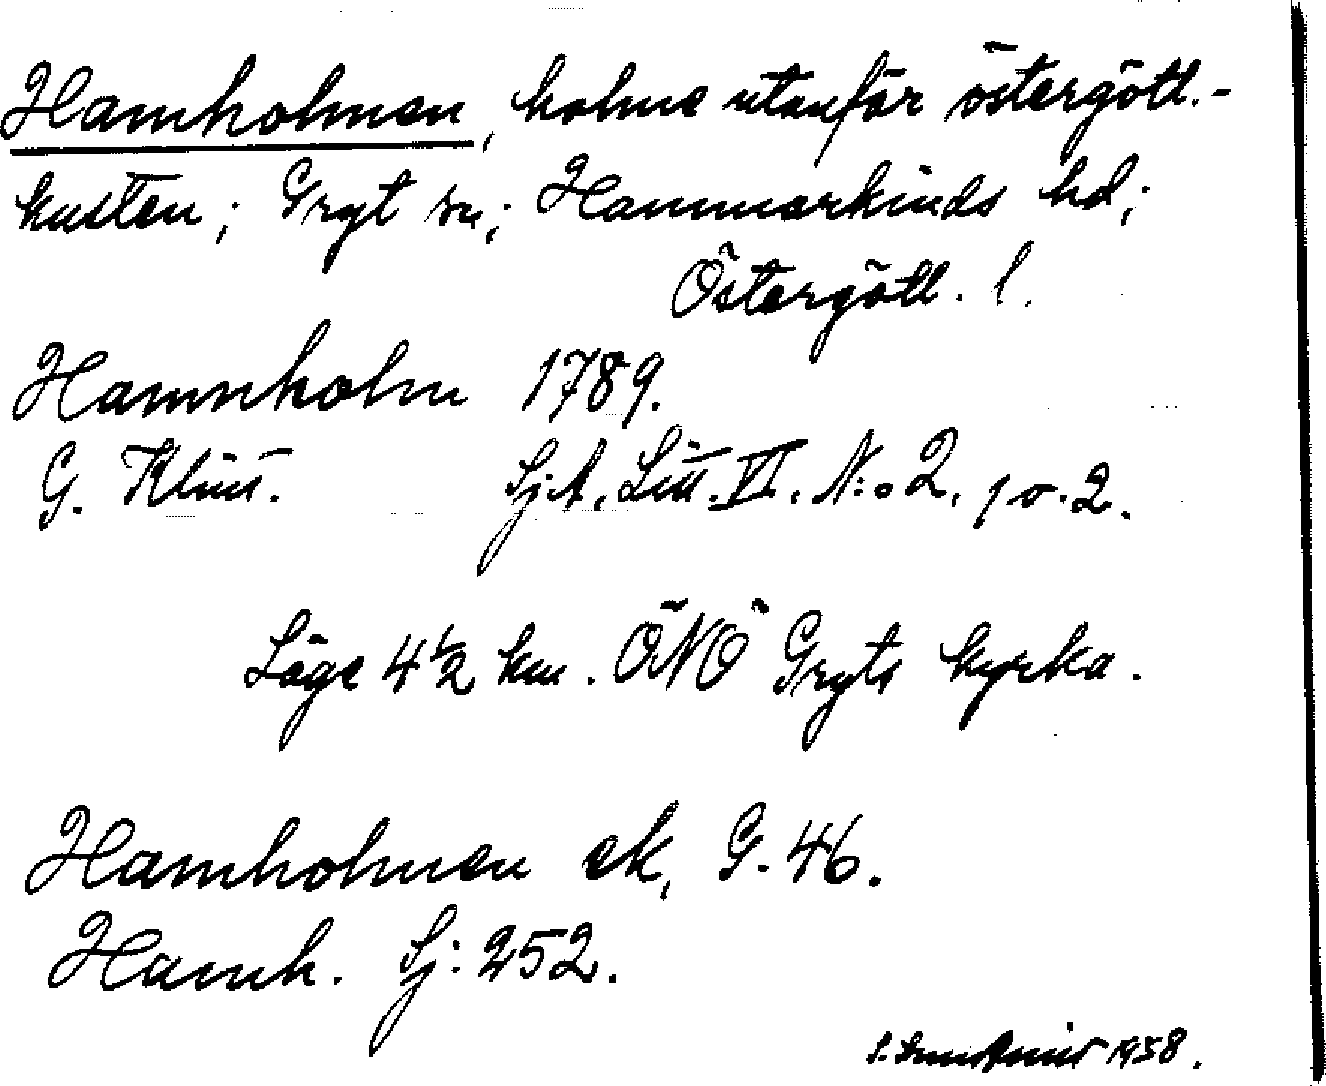 Hamnholmen, holme utanför östergötl.-
kusten; Gryt sn; Hammarkinds hd;
Östergötl. l.
Hamnholm 1789.
G. Klint. Sj.A. Litt. VI. N:o 2. p o. 2.
Läge 4 1/2 km. ÖNÖ Gryts kyrka.
Hamnholmen ek, G. 46.
Hamnh. Sj: 252.
1958.